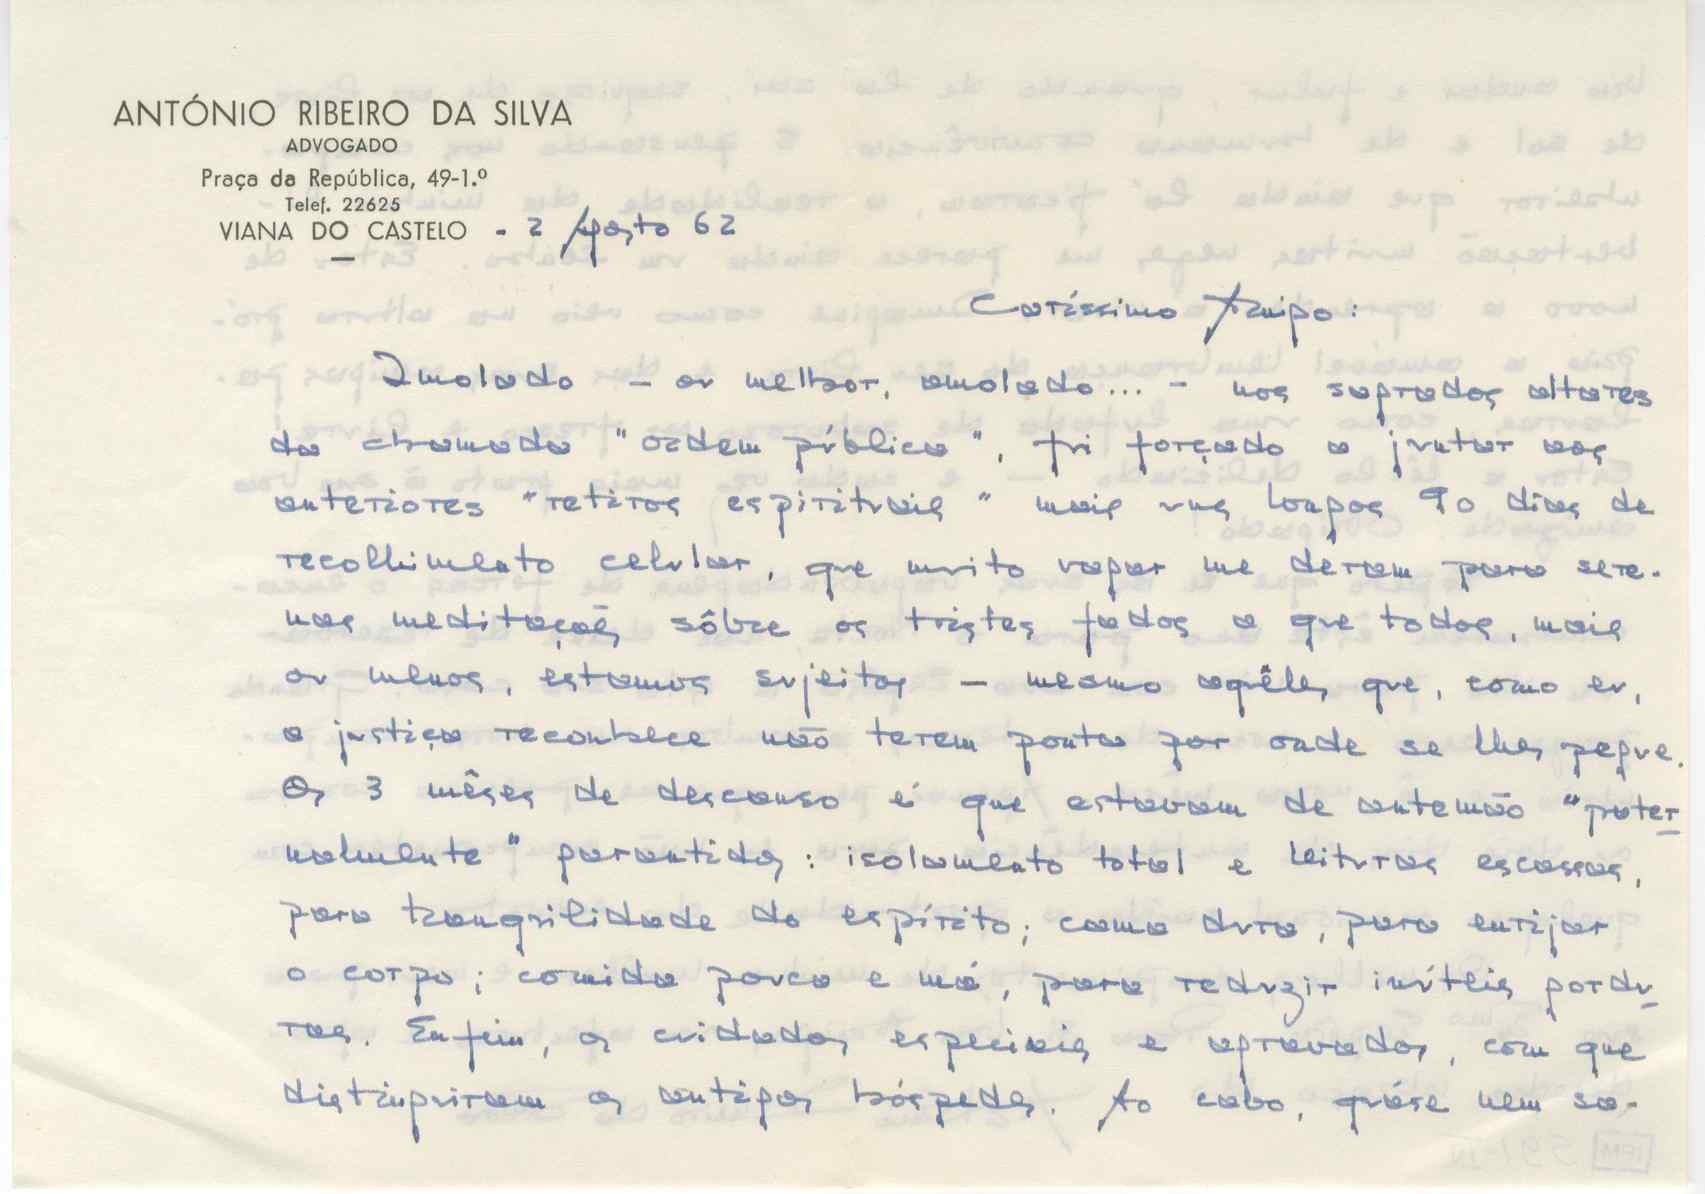 ANTÓNIO RIBEIRO DA SILVA
ADVOGADO
Praça da República, 49-1.º
Telef. 22625
VIANA DO CASTELO - 2 Agosto 62
Caríssimo Amigo:
Imolado - ou melhor, amolado... - nos sagrados altares
da chamada "ordem pública", fui forçado a juntar aos
anteriores "retiros espirituais" mais uns longos 90 dias de
recolhimento celular, que muito vagar me deram para sere-
nas meditações sôbre os tristes fados a que todos, mais
ou menos, estamos sujeitos - mesmo aquêles que, como eu,
a justiça reconhece não terem ponta por onde se lhes pegue.
Os 3 mêses de descanso é que estavam de antemão "pater-
nalmente" garantidos: isolamento total e leituras escassas,
para tranquilidade do espírito; cama dura, para enrijar
o corpo; comida pouca e má, para reduzir inúteis gordu-
ras. Enfim, os cuidados especiais e agravados, com que
distinguiram os antigos hóspedes. Ao cabo, quáse nem sa-